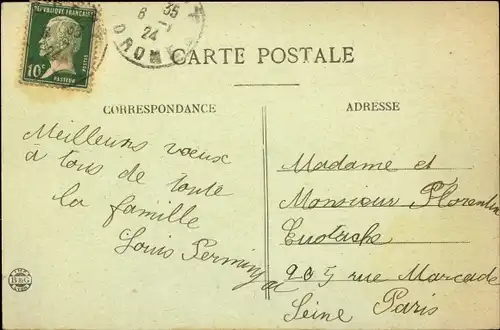 RÉPUBLIQUE FRANÇAISE
10c
POSTES
PASTEUR
6 35
24
DROME
CARTE POSTALE
CORRESPONDANCE
ADRESSE
Meilleurs vœux
à tous de toute
la famille
Louis
Madame et
Monsieur Florentin
205 rue Marcade
Seine Paris
B&G